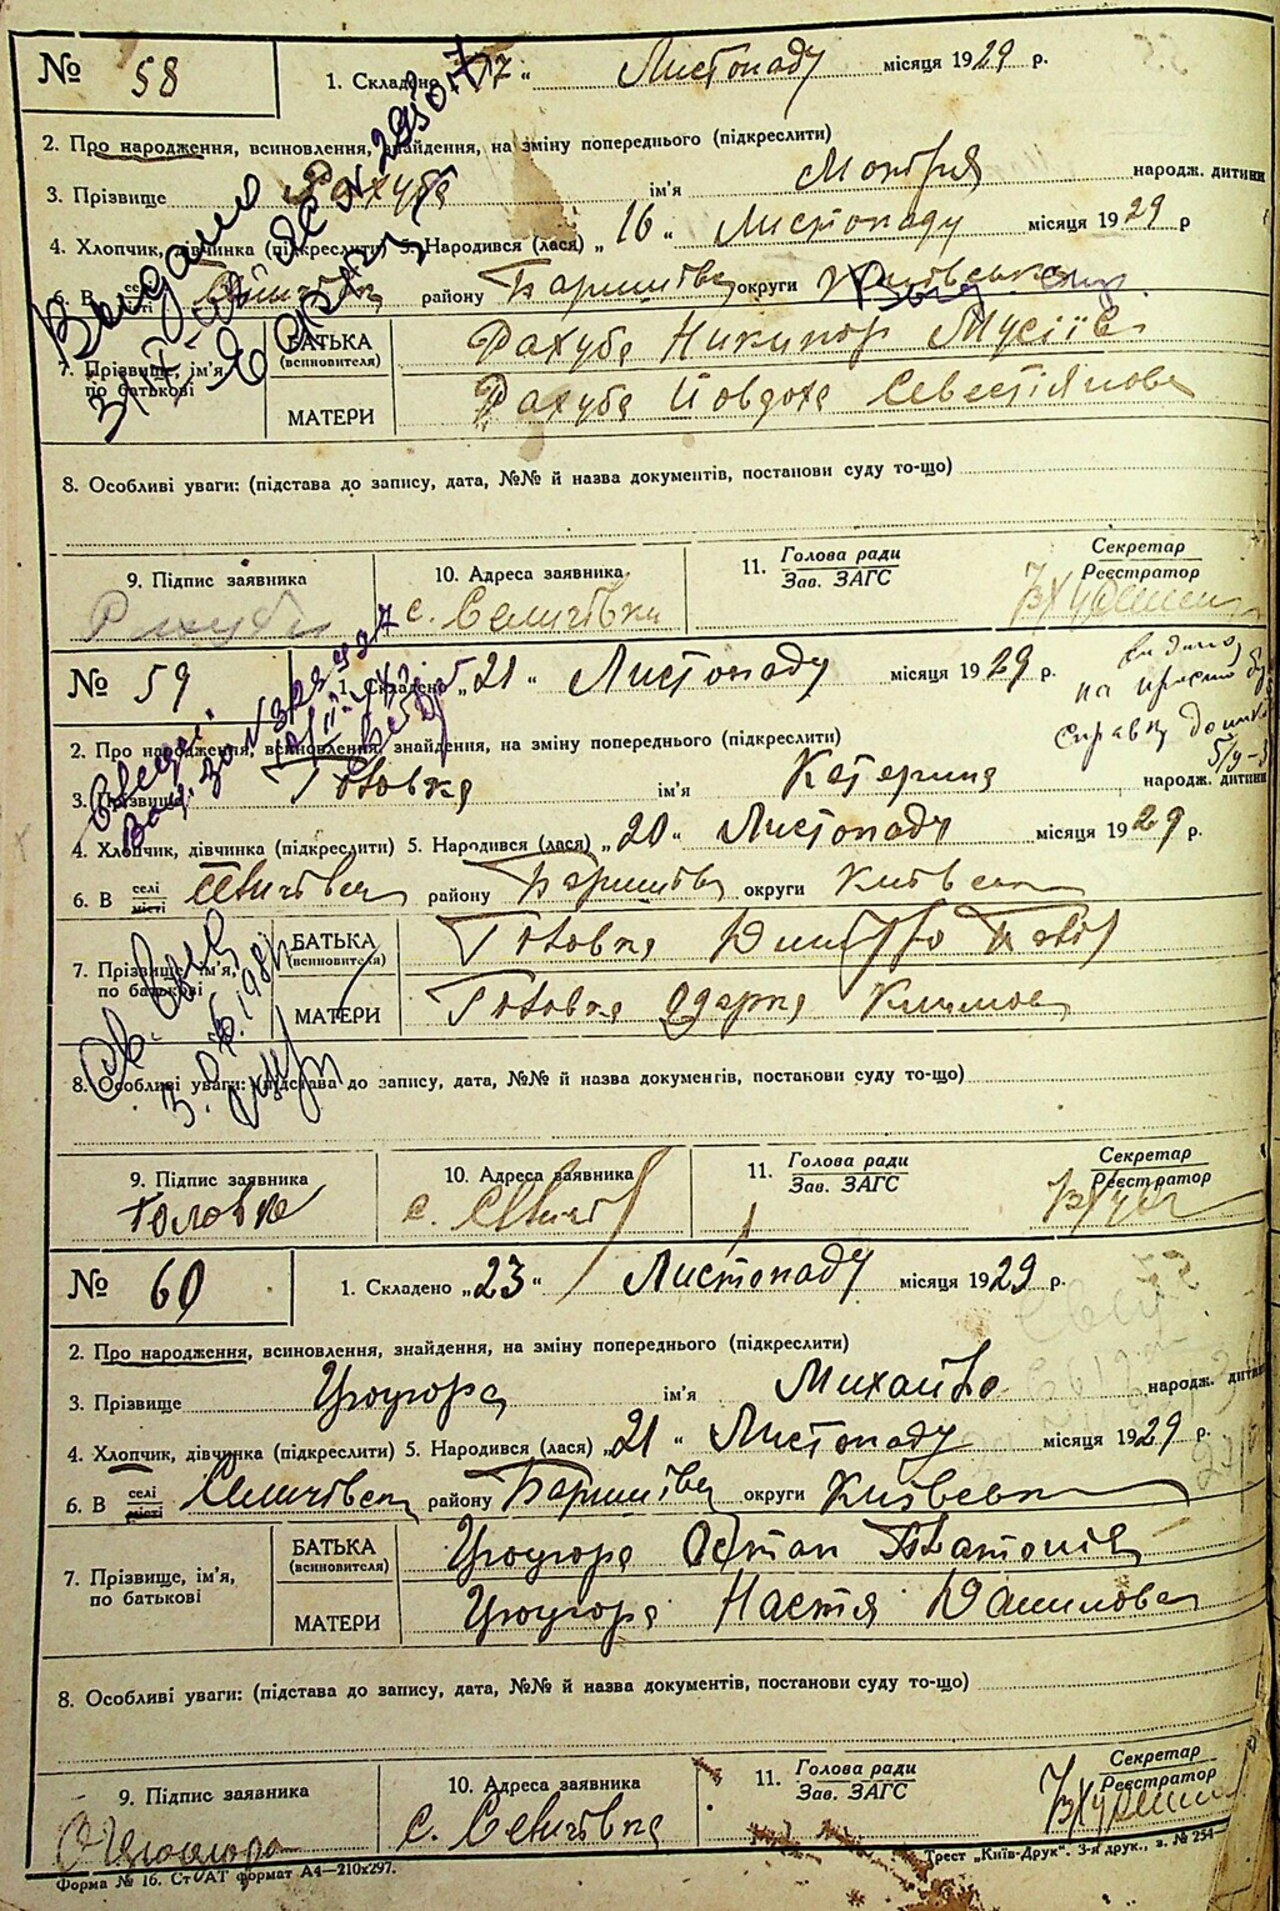 № 58
1. Складено „17“ Листопаду місяця 1929 р.
2. Про народження, всиновлення, знайдення, на зміну попереднього (підкреслити)
3. Прізвище Рахуба ім'я Мотря народж. дитини
4. Хлопчик, дівчинка (підкреслити) 5. Народився (лася) „16“ Листопаду місяця 1929 р
6. В селі місті району Баришівс округи
7. Прізвище, ім'я, по батькові
БАТЬКА (всиновителя) Рахуба Никипор Мусіїв
МАТЕРИ Рахуба Йовдоха Севестіянова
8. Особливі уваги: (підстава до запису, дата, №№ й назва документів, постанови суду то-що)
9. Підпис заявника Рахуба
10. Адреса заявника с. Селичівка
11. Голова ради Зав. ЗАГС
Секретар Реєстратор
№ 59
1. Складено „21“ Листопаду місяця 1929 р.
2. Про народження, всиновлення, знайдення, на зміну попереднього (підкреслити)
3. Прізвище Головка ім'я Катерина народж. дитини
4. Хлопчик, дівчинка (підкреслити) 5. Народився (лася) „20“ Листопаду місяця 1929 р.
6. В селі місті району Баришівс округи Київськ
7. Прізвище, ім'я, по батькові
БАТЬКА (всиновителя) Головка Дмитро Павл
МАТЕРИ Головка Одарка Климов
8. Особливі уваги: (підстава до запису, дата, №№ й назва документів, постанови суду то-що)
9. Підпис заявника Головка
10. Адреса заявника с.
11. Голова ради Зав. ЗАГС
Секретар Реєстратор
№ 60
1. Складено „23“ Листопаду місяця 1929 р.
2. Про народження, всиновлення, знайдення, на зміну попереднього (підкреслити)
3. Прізвище Цюцюра ім'я Михайло народж. дитини
4. Хлопчик, дівчинка (підкреслити) 5. Народився (лася) „21“ Листопаду місяця 1929 р.
6. В селі місті Селичівськ району Баришівс округи Київськ
7. Прізвище, ім'я, по батькові
БАТЬКА (всиновителя) Цюцюра Остап Платонів
МАТЕРИ Цюцюра Настя Данилова
8. Особливі уваги: (підстава до запису, дата, №№ й назва документів, постанови суду то-що)
9. Підпис заявника О Цюцюра
10. Адреса заявника с. Селичівка
11. Голова ради Зав. ЗАГС
Секретар Реєстратор
Форма № 16. СтОАТ формат А4—210х297.
Трест „Київ-Друк“. 3-я друк., з. № 254—